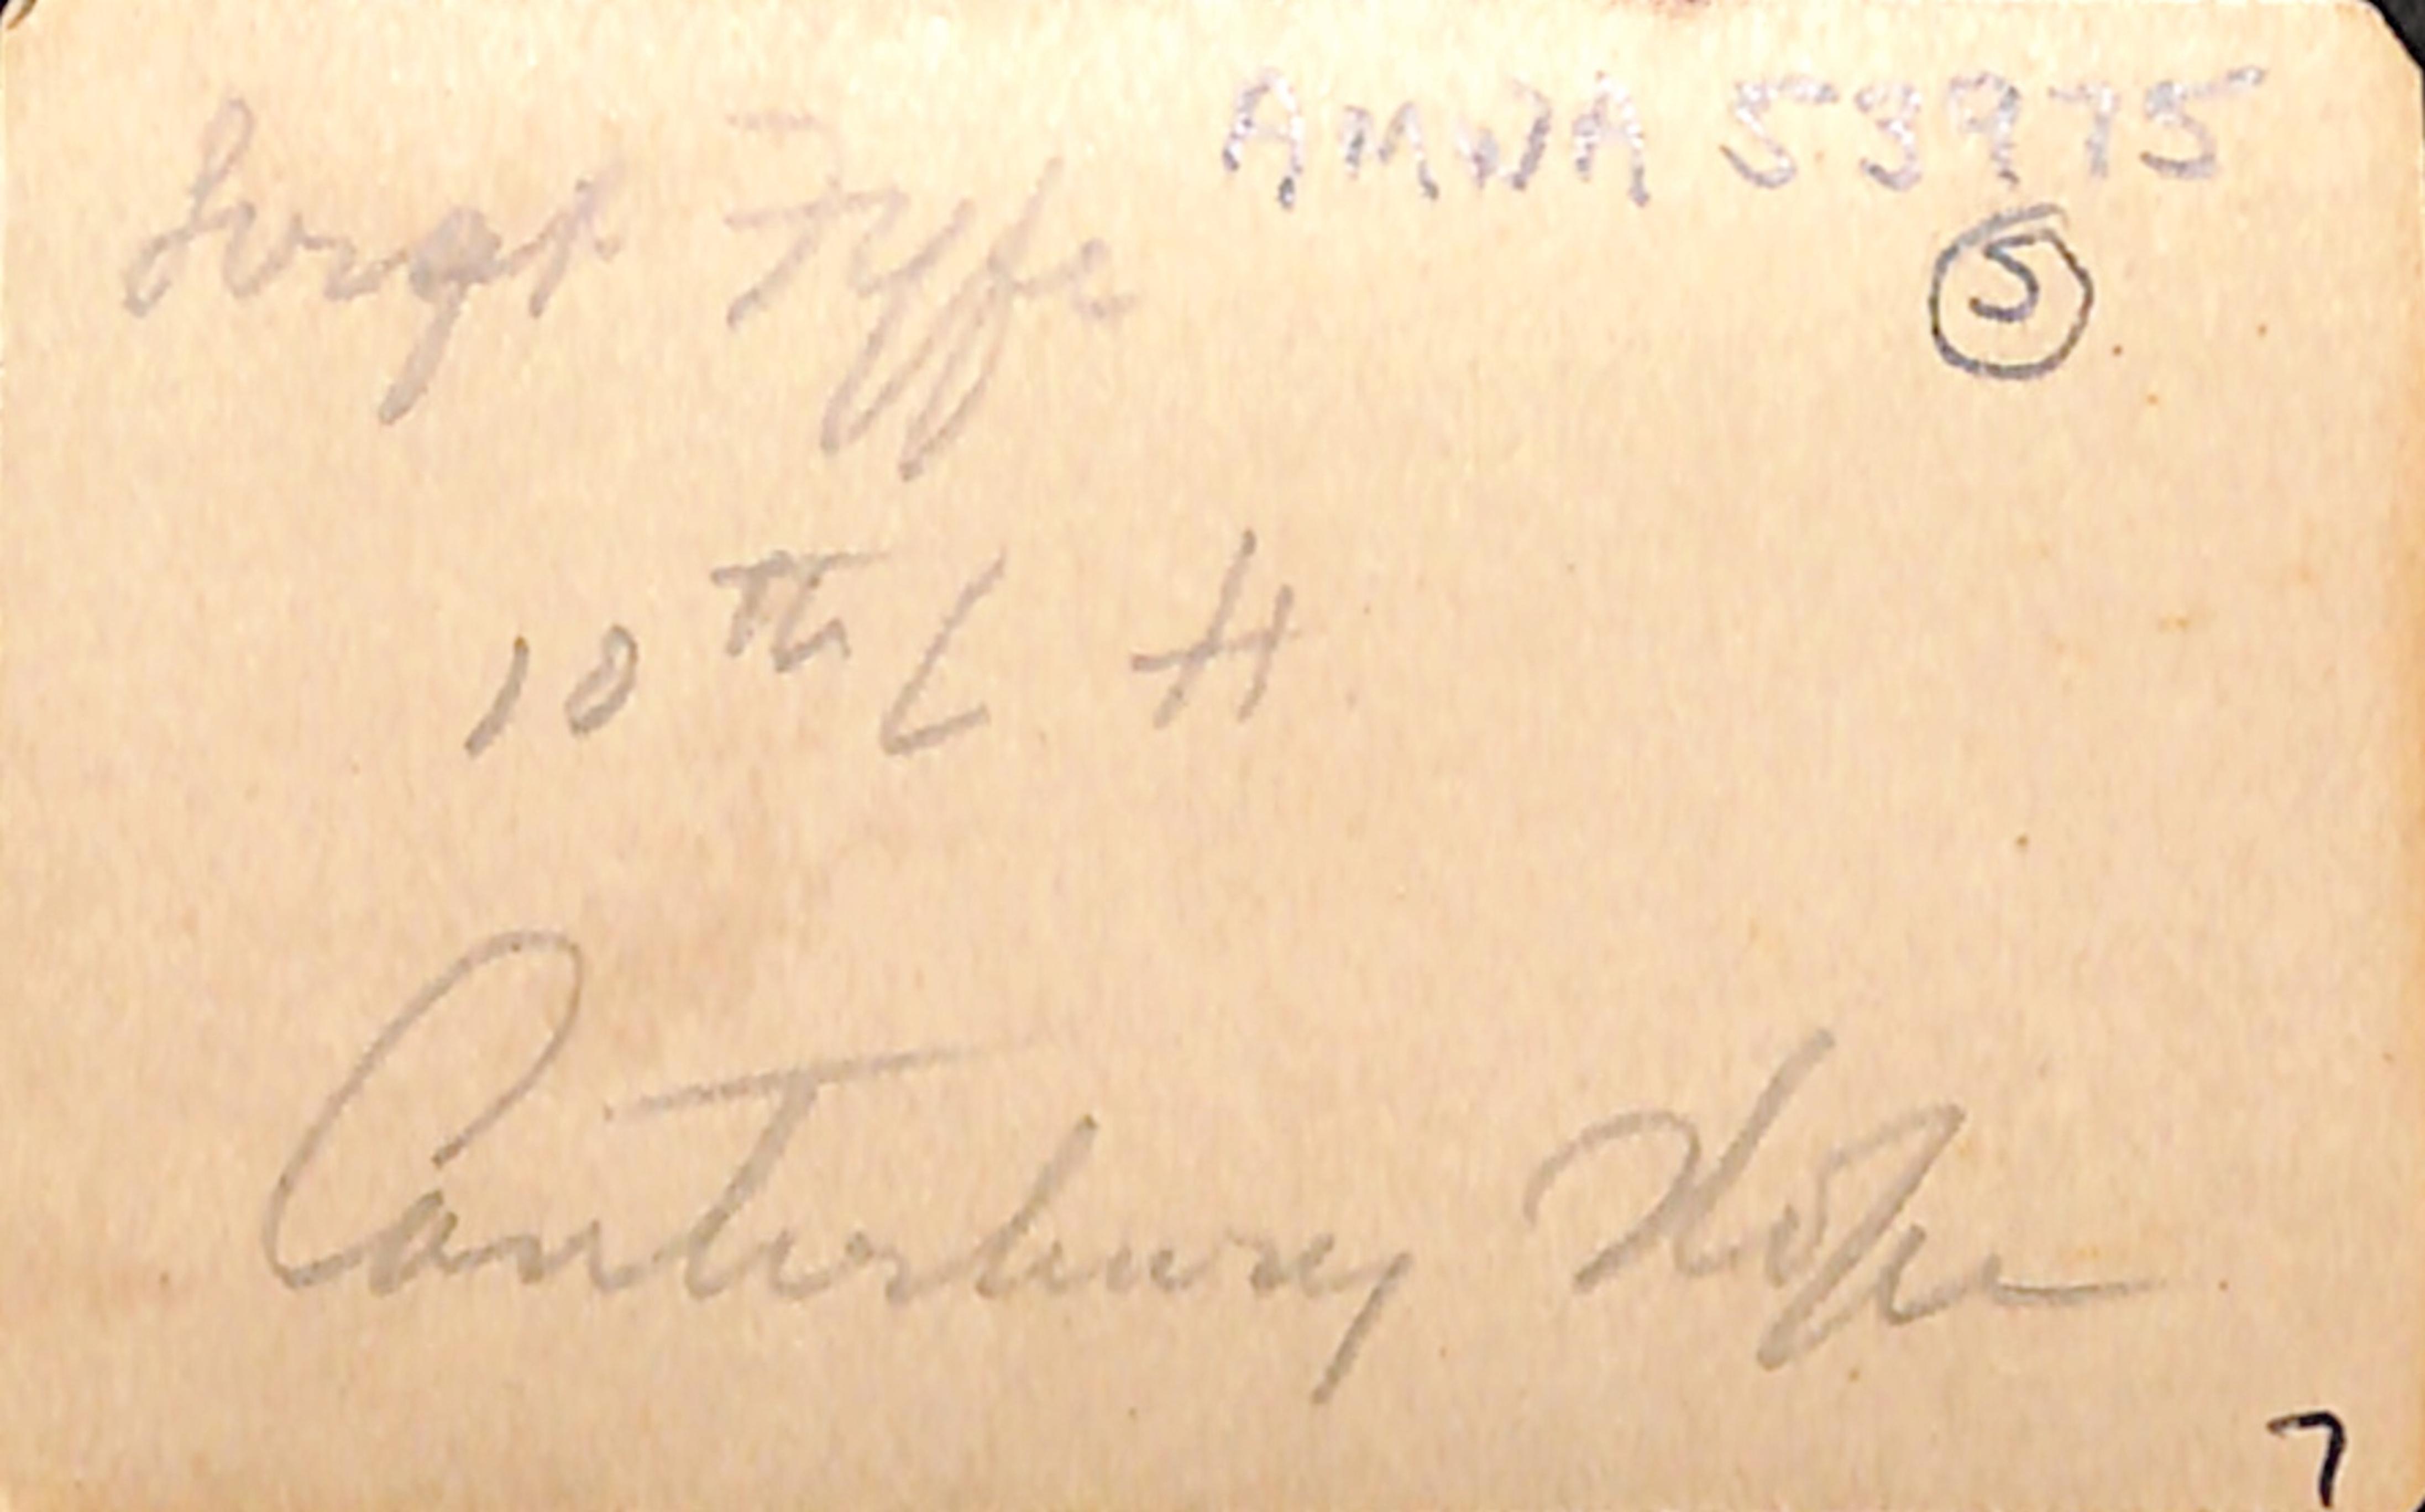 Sergt Fyffe AMWA 53975
5
10th L H
Canterbury
7